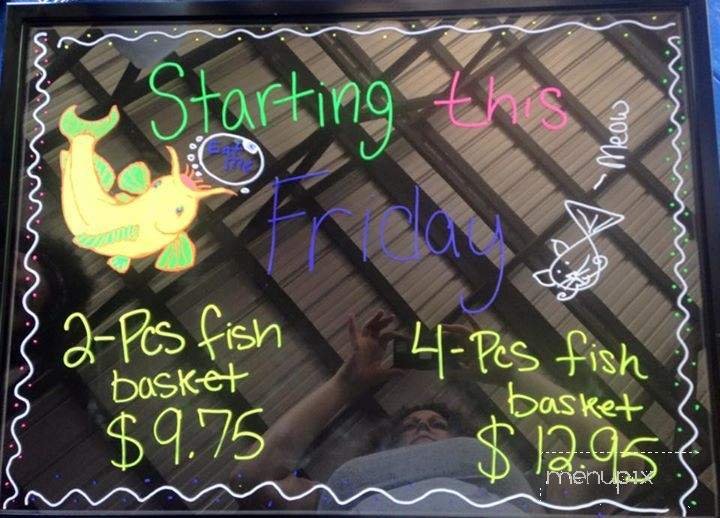 Starting this
Eat me
~ Meow
Friday
2-Pcs fish
basket
$9.75
4-Pcs fish
basket
$12.95
menupix